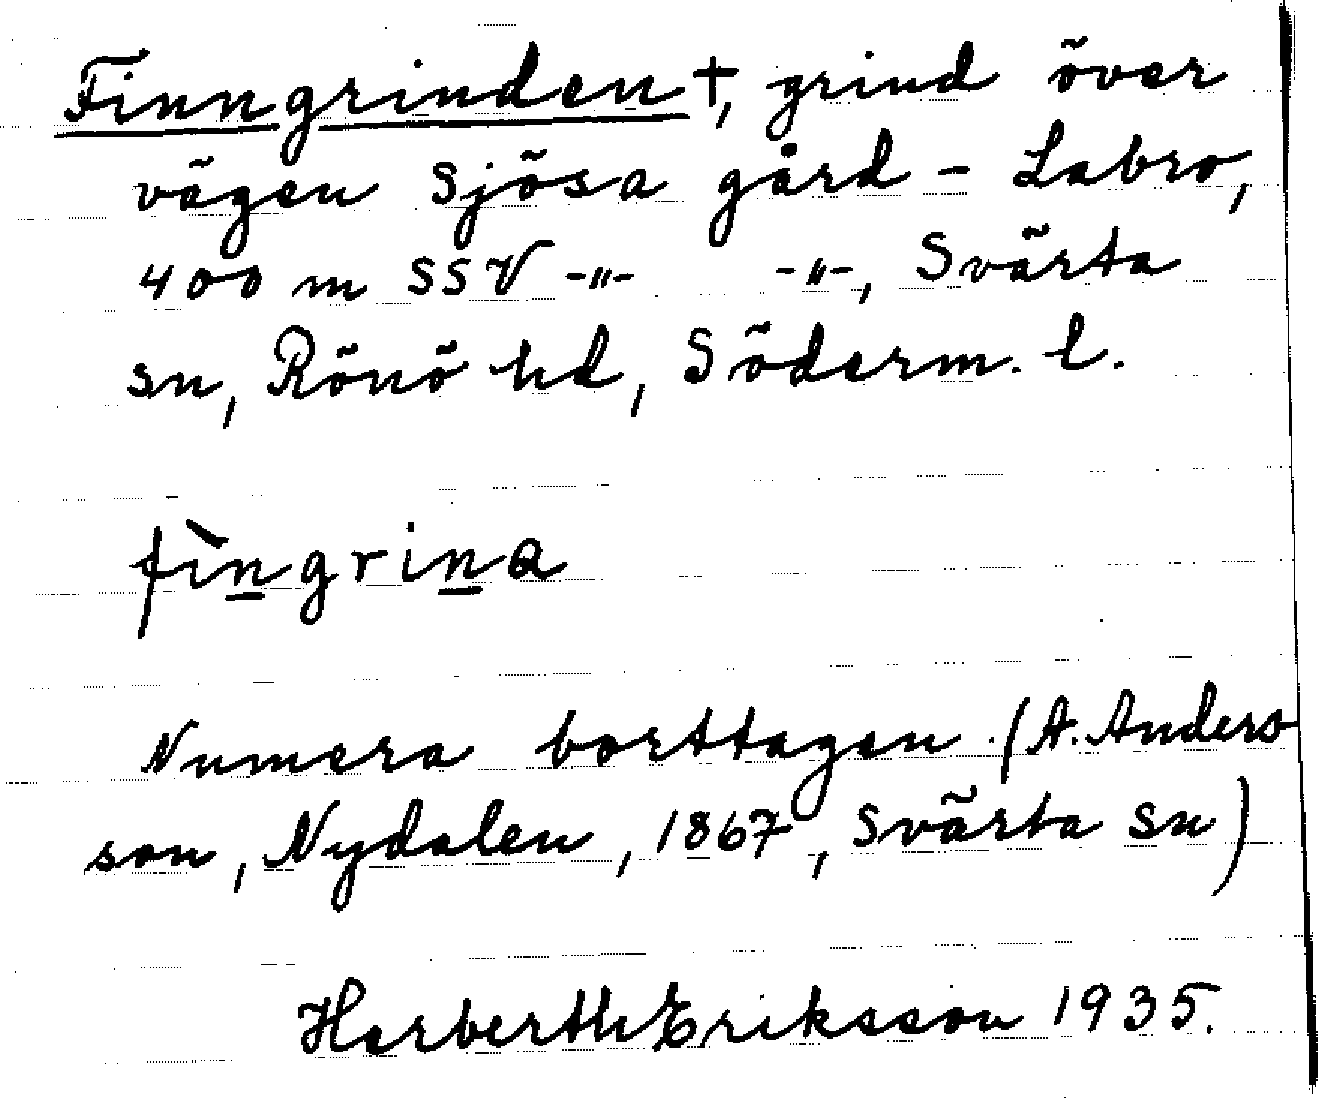 Finngrinden †, grind över
vägen Sjösa gård - Labro,
400 m SSV -"- -"-, Svärta
sn, Rönö hd, Söderm. l.
fìn̲grin̲a
Numera borttagen. (A. Anders
son, Nydalen, 1867, Svärta sn)
Herberth Eriksson 1935.